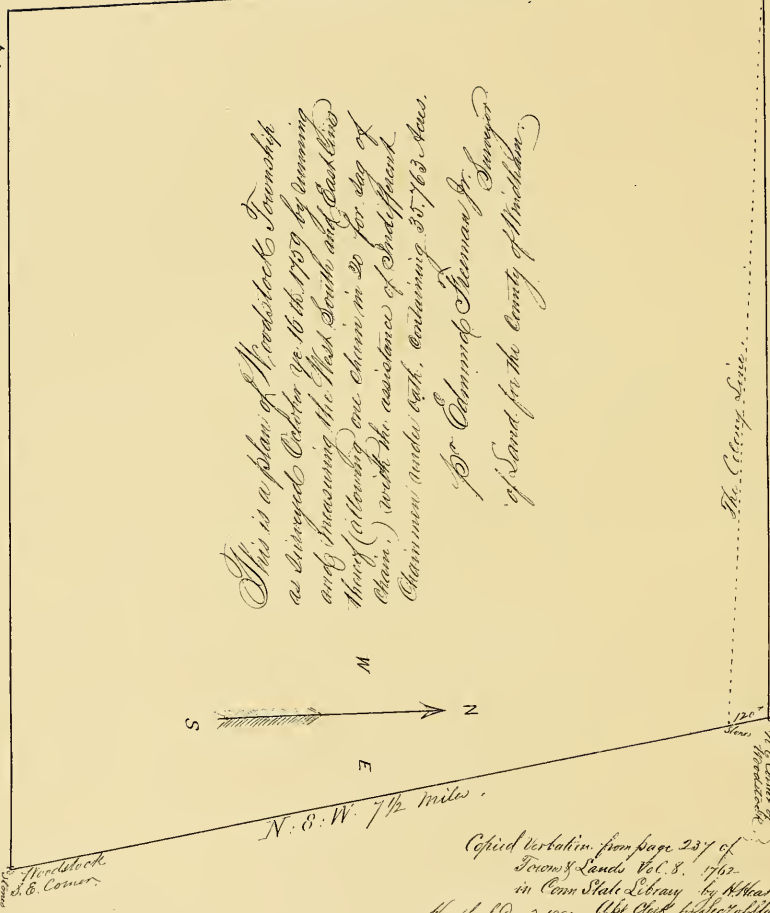 This is a plan of Woodstock Township
as surveyed October ye 16th 1759 by running
and measuring the West South and East lines
thereof (allowing one chain in 20 for Sag of
Chain.) with the assistance of Indifferent
Chainmen under oath, Containing 35,763 Acres.
pr Edmund Freeman Jr. Surveyor
of Land for the County of Windham.
The Colony Line
W
S
N
E
N: 8: W: 7 1/2 miles.
120
Stones
N E Corner of
Woodstock
Stones
Woodstock
S. E. Corner.
Copied Verbatim from page 237 of
Towns & Lands Vol. 8. 1762
in Conn State Library by